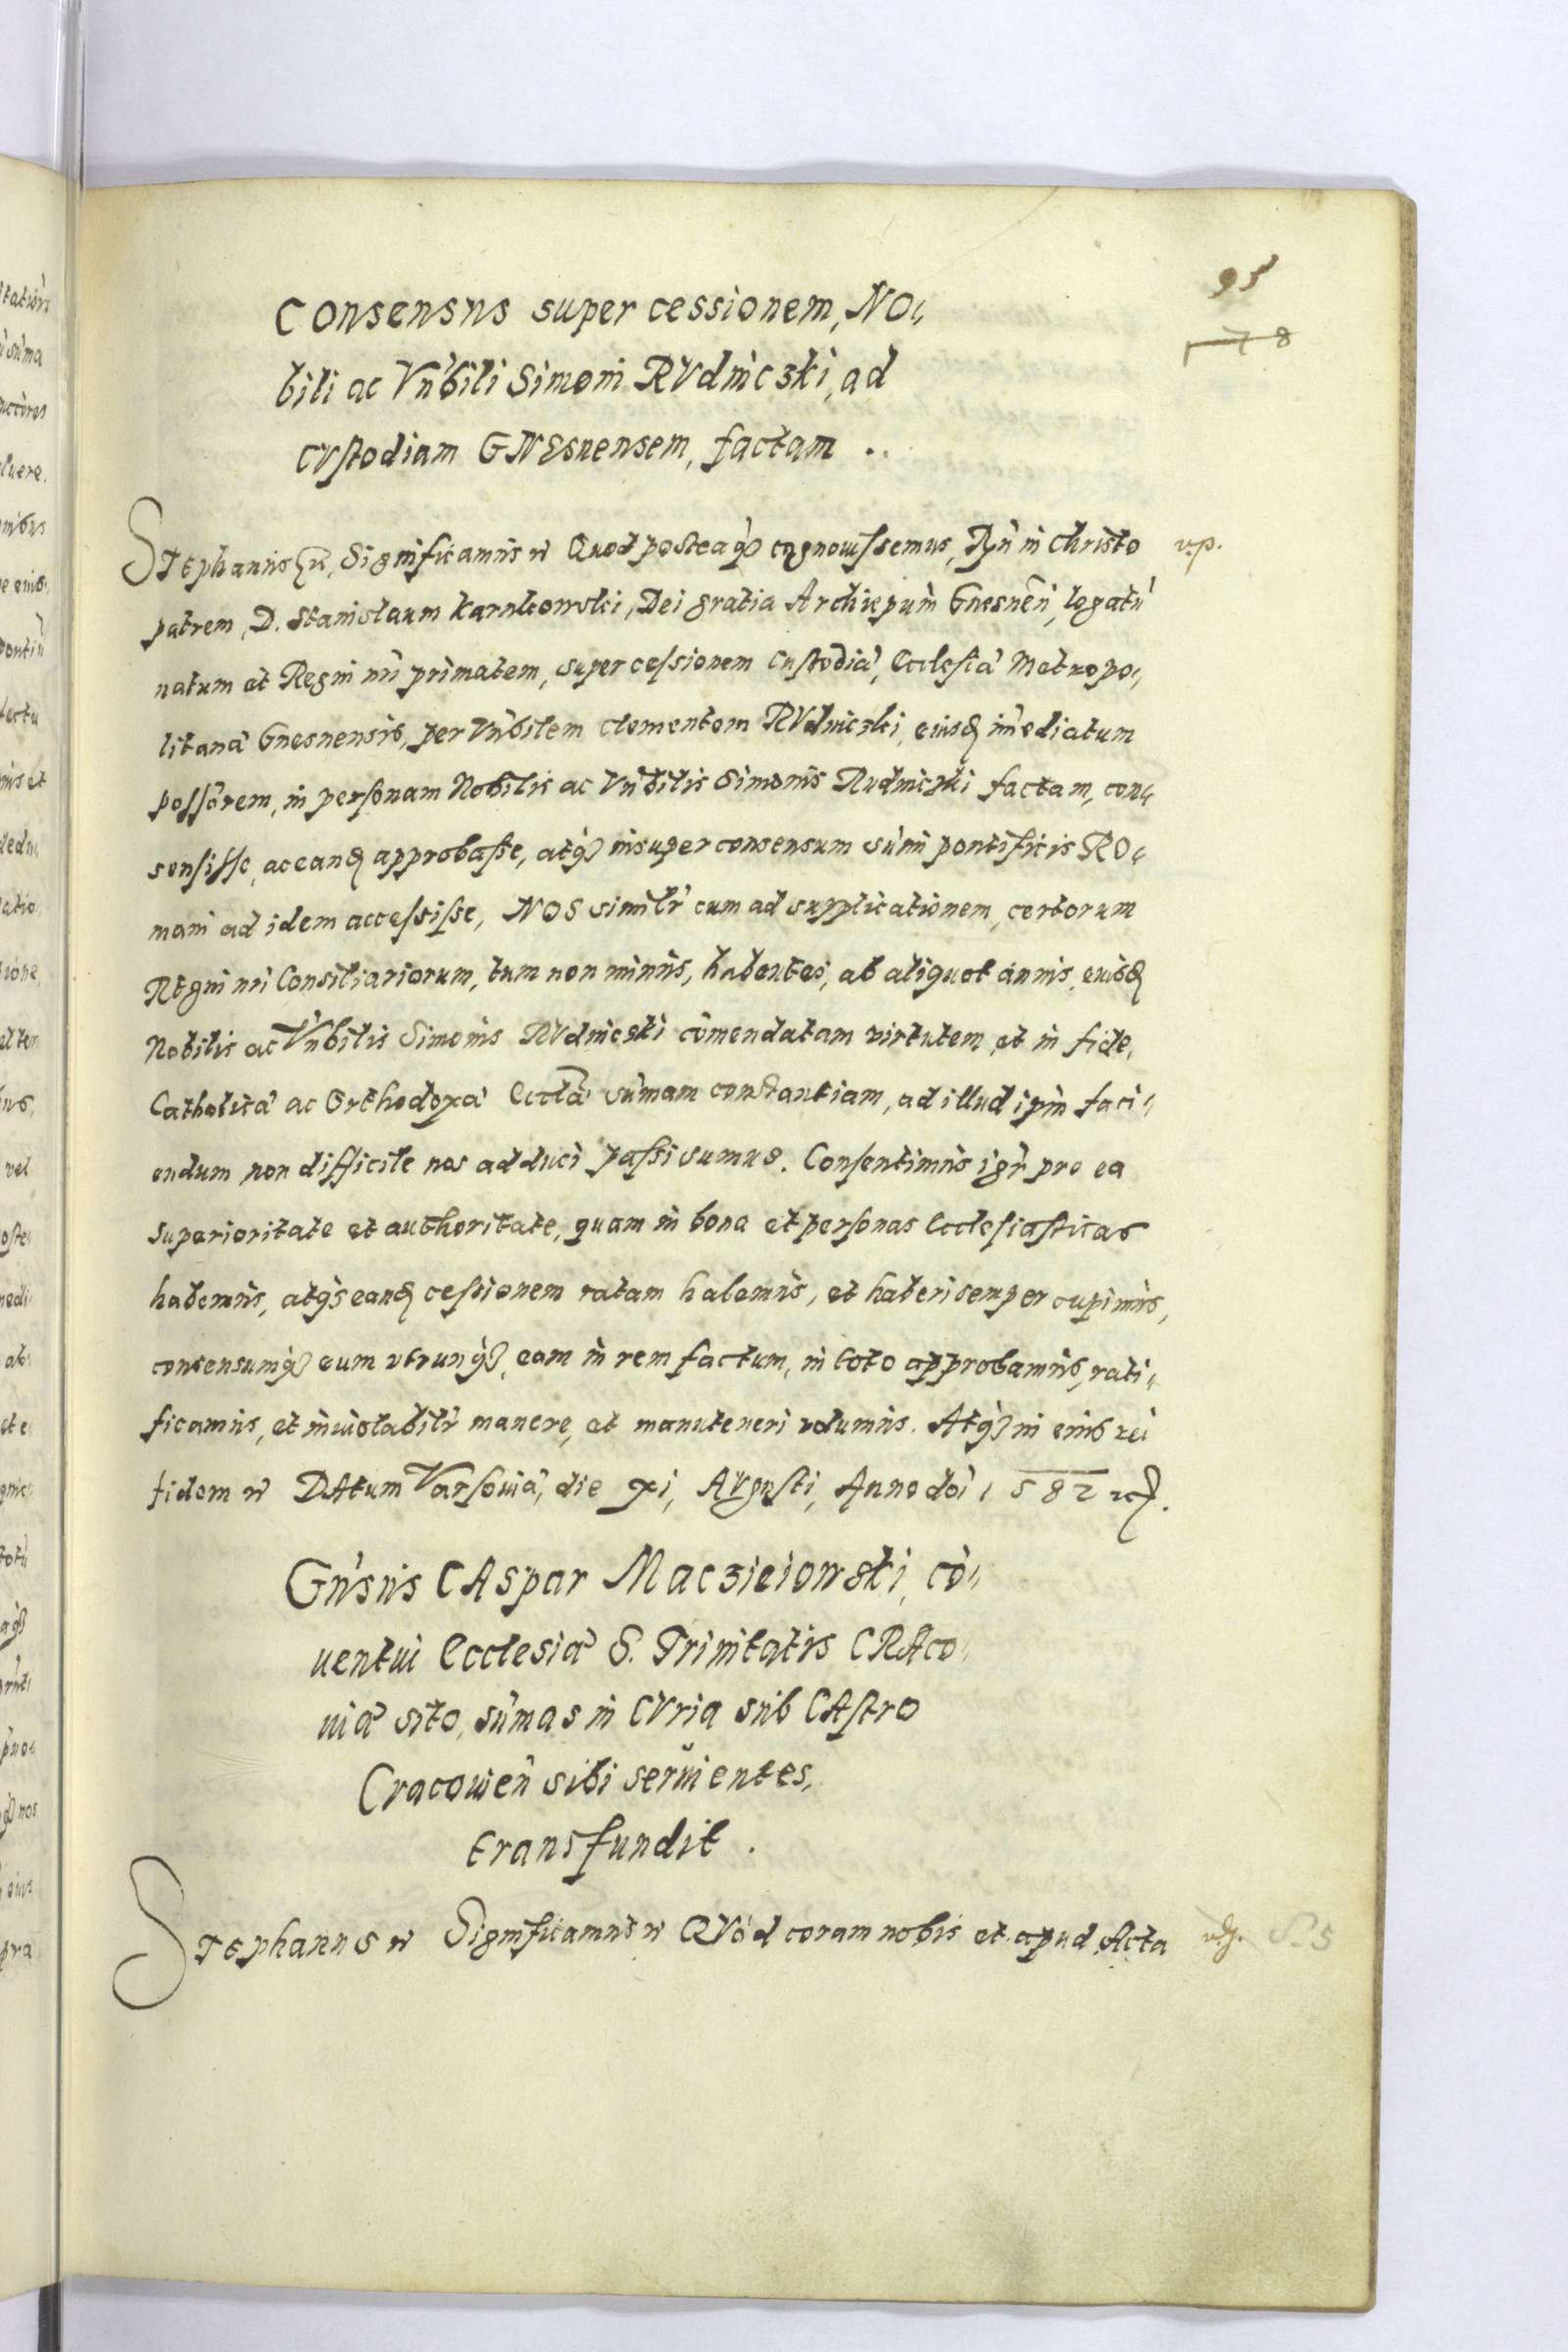 95
178
Consensus super cessionem, No„
bili ac Vn̄bili Simoni RVdniczki, ad
CVstodiam GNEsnensem, factam ..
STEphanus etc. Significamus etc. Quod posteaq̃ cognouissemus, Rṅ in Christo v.p.
patrem, D. Stanislaum Karnkowski, Dei gratia Archiepum̃ Gnesneñ, legatũ
natum et Regni nr̃i primatem, super cessionem Custodiæ, Ecclesiæ Metropo„
litanæ Gnesnensis, per Vn̄bilem Clementem RVdniczki, eiusq̃ im̃ediatum
possõrem, in personam Nobilis ac Vn̄bilis Simonis Rudniczki factam, con„
sensisse, ac eanq̃ approbasse, atq̃ insuper consensum sum̃i pontificis RO„
mani ad idem accessisse, NOS similr̃ cum ad supplicationem, certorum
Regni nr̃i Consiliariorum, tum non minus, habentes, ab aliquot annis, eiusq̃
Nobilis ac Vn̄bilis Simonis RVdnicski com̃endatam virtutem, et in fide,
Catholica ac Orthodoxa Eccla̅ sum̃am constantiam, ad illud ipm̃ faci„
endum non difficile nos adduci passi sumus. Consentimus igr̃ pro ea
superioritate et authoritate, quam in bona et personas Ecclesiasticas
habemus, atq̃ eanq̃ cessionem ratam habemus, et haberi semper cupimus,
consensumq̃ eum vtrunq̃, eam in rem factum, in toto approbamus, rati„
ficamus, et inuiolabilr̃ manere, et manuteneri volumus. Atq̃ in eius rei
fidem etc. DAtum Varsouiæ, die xi, AVgusti, Anno doĩ 1582 etc.
Gn̄sus CAspar Maczieiowski, cõ„
uentui Ecclesiæ S. Trinitatis CRAco„
uiæ sito, sum̃as in CVria sub CAstro
Cracouień sibi seruientes,
transfundit .
STEphanus etc. Significamus etc. QVod coram nobis et apud Acta